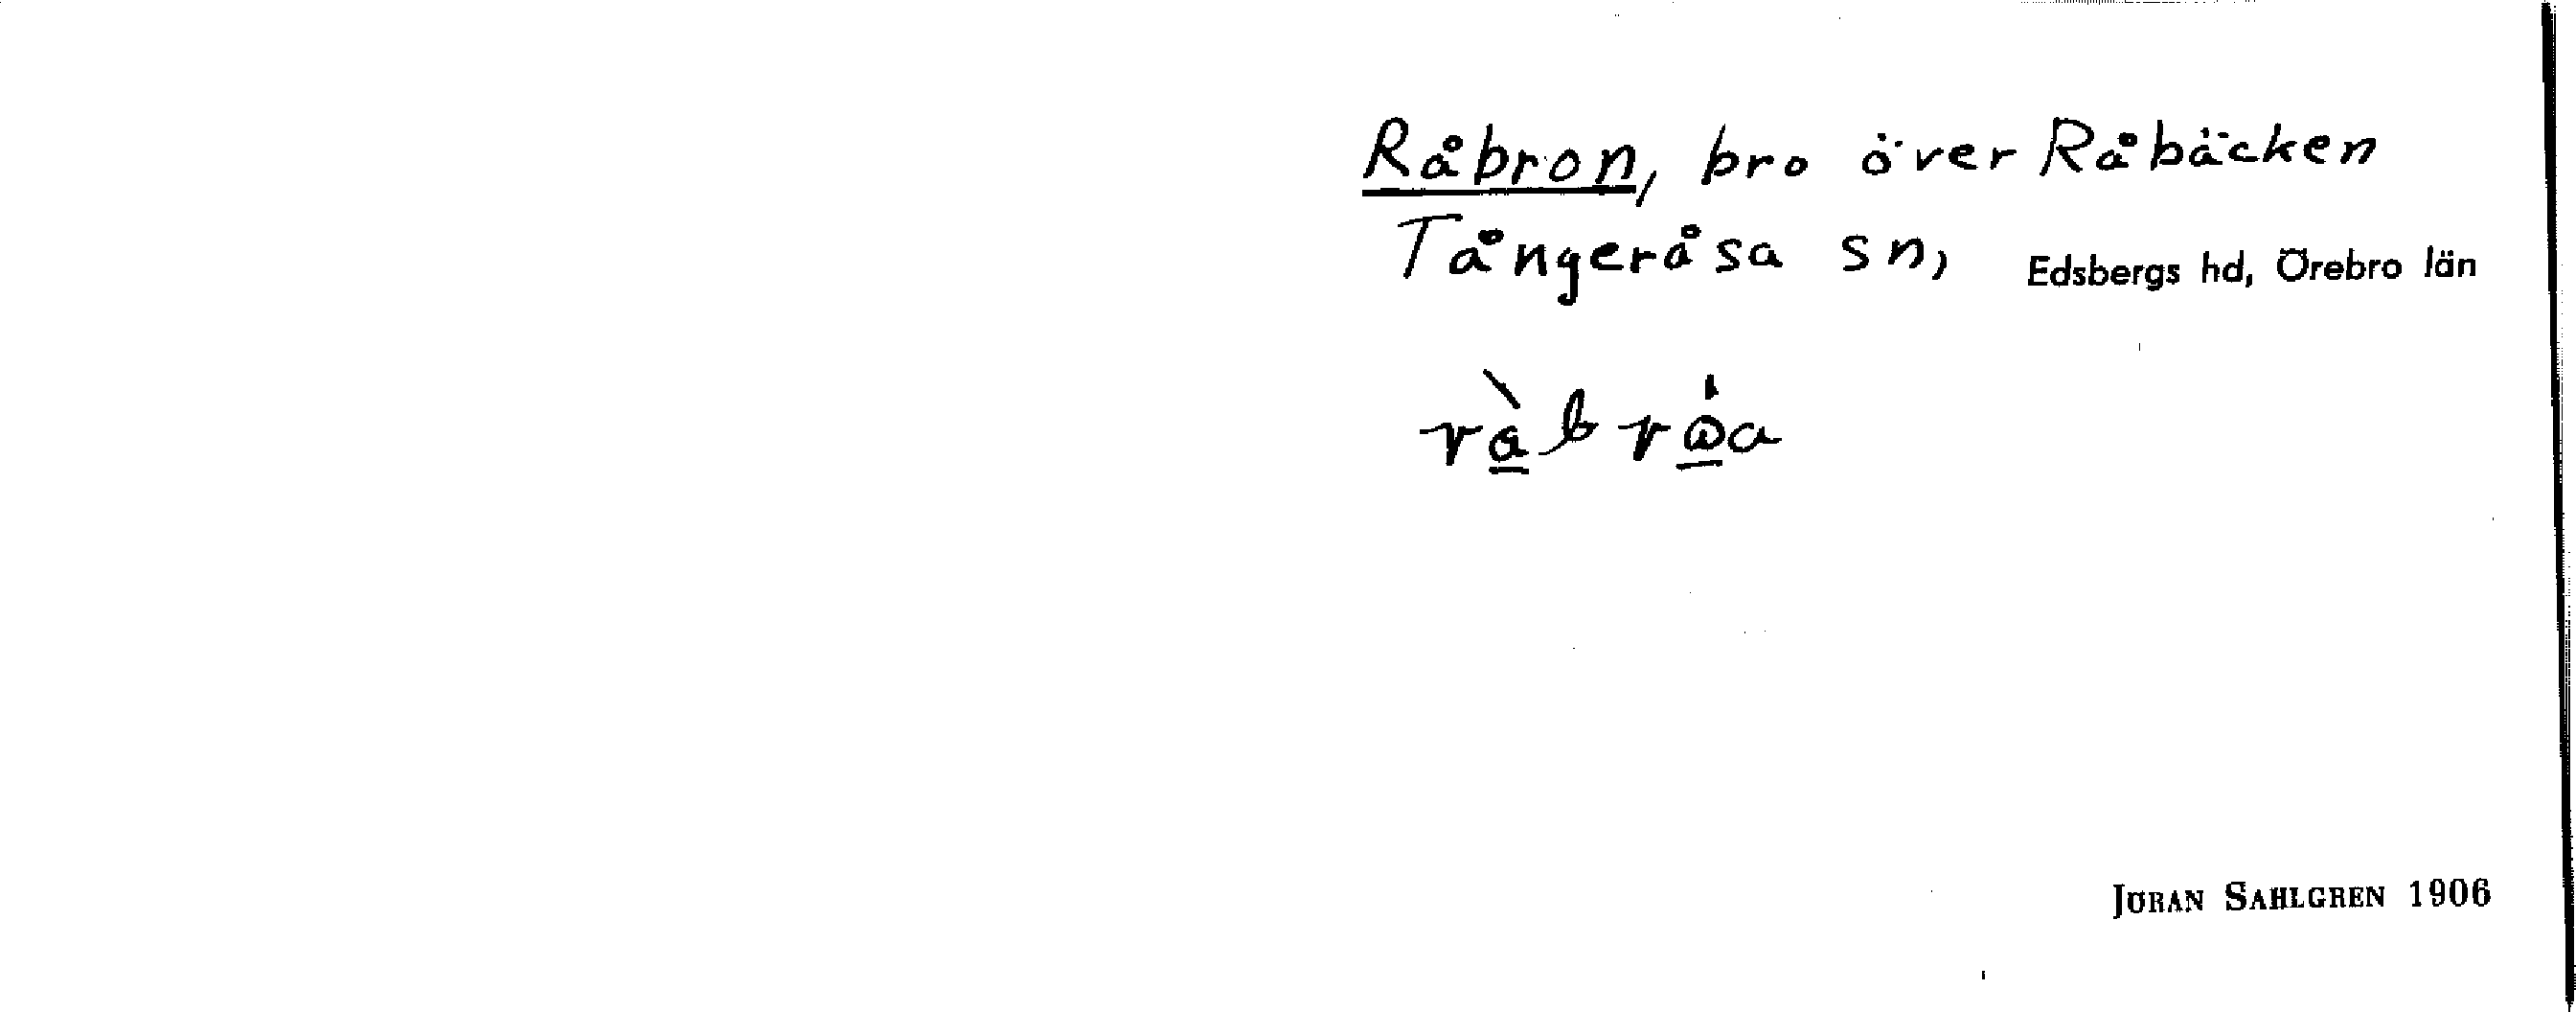 Råbron, bro över Råbäcken
Tångeråsa sn, Edsbergs hd, Örebro län
Jöran Sahlgren 1906